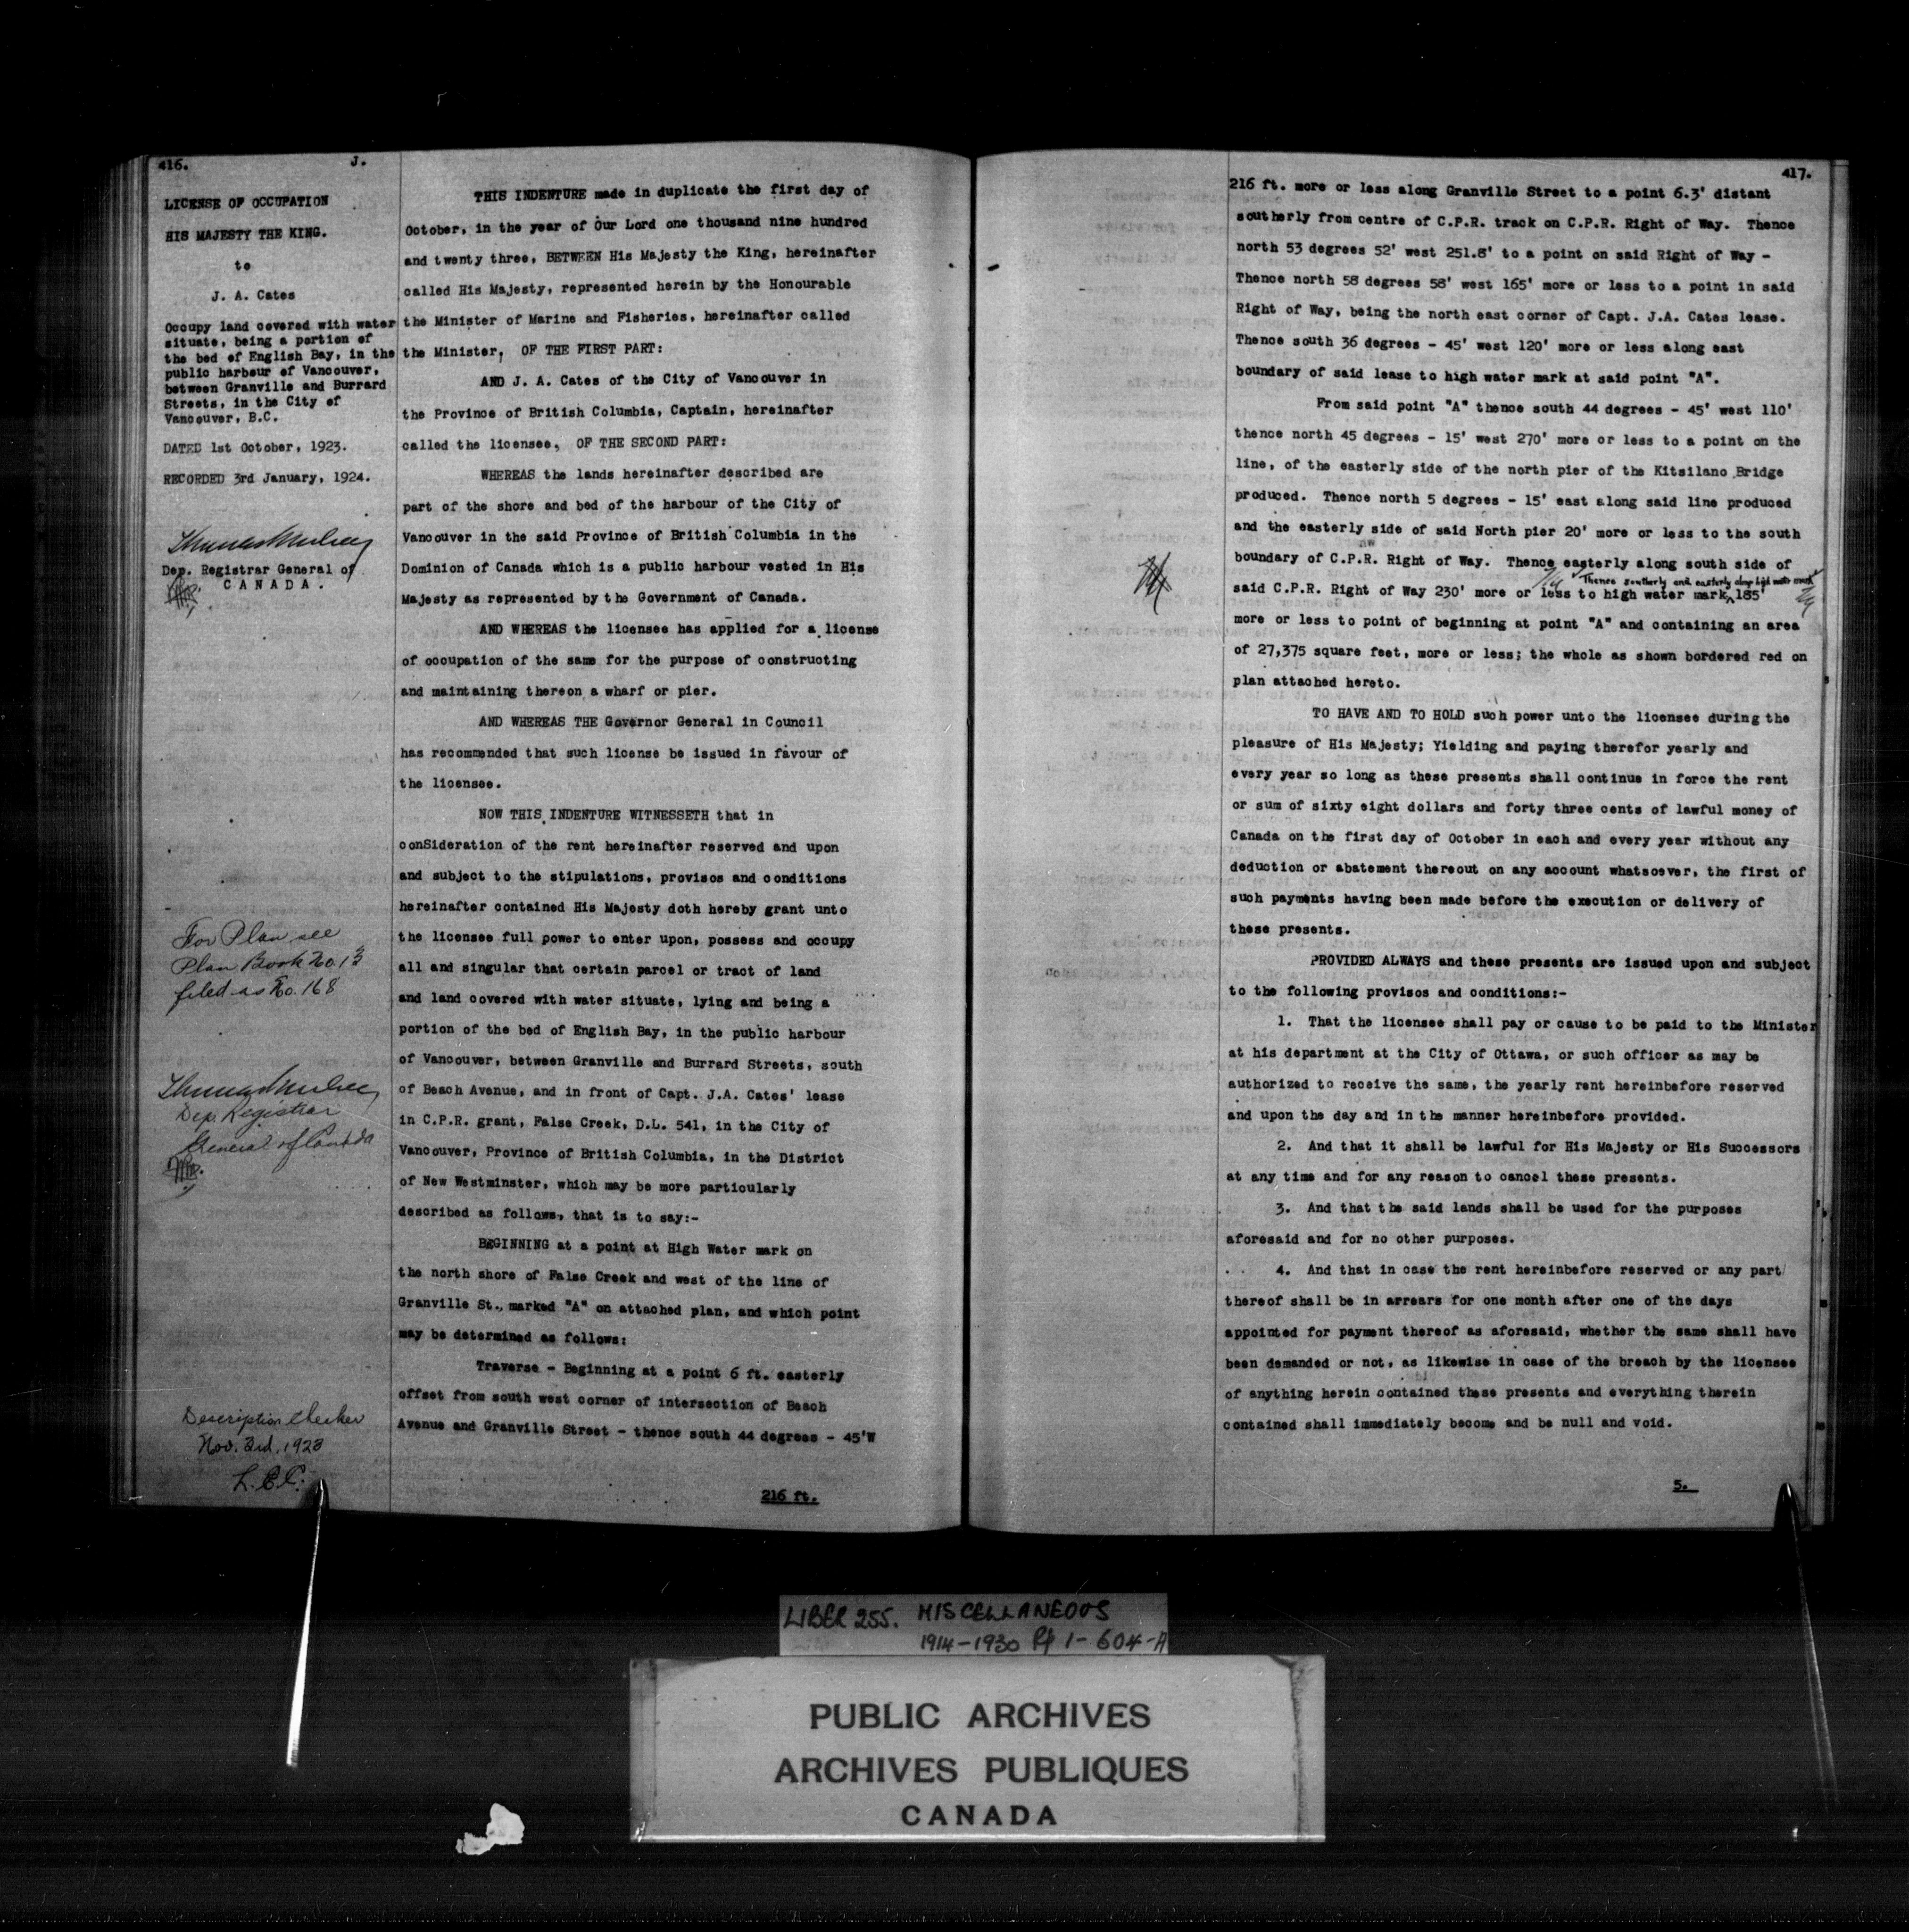 416.
J.
LICENSE OF OCCUPATION
HIS MAJESTY THE KING.
to
J. A. Cates
Occupy land covered with water
situate, being a portion of
the bed of English Bay, in the
public harbour of Vancouver,
between Granville and Burrard
Streets, in the City of
Vancouver, B.C.
DATED 1st October, 1923.
RECORDED 3rd January, 1924.
Thomas Mulvey
Dep. Registrar General of
CANADA.
For Plan see
Plan Book No. 13
filed as No. 168
Thomas Mulvey
Dep. Registrar
General of Canada
Description Checker
Nov. 3rd, 1923
THIS INDENTURE made in duplicate the first day of
October, in the year of Our Lord one thousand nine hundred
and twenty three, BETWEEN His Majesty the King, hereinafter
called His Majesty, represented herein by the Honourable
the Minister of Marine and Fisheries, hereinafter called
the Minister, OF THE FIRST PART:
AND J. A. Cates of the City of Vancouver in
the Province of British Columbia, Captain, hereinafter
called the licensee, OF THE SECOND PART:
WHEREAS the lands hereinafter described are
part of the shore and bed of the harbour of the City of
Vancouver in the said Province of British Columbia in the
Dominion of Canada which is a public harbour vested in His
Majesty as represented by the Government of Canada.
AND WHEREAS the licensee has applied for a license
of occupation of the same for the purpose of constructing
and maintaining thereon a wharf or pier.
AND WHEREAS THE Governor General in Council
has recommended that such license be issued in favour of
the licensee.
NOW THIS INDENTURE WITNESSETH that in
conSideration of the rent hereinafter reserved and upon
and subject to the stipulations, provisos and conditions
hereinafter contained His Majesty doth hereby grant unto
the licensee full power to enter upon, possess and occupy
all and singular that certain parcel or tract of land
and land covered with water situate, lying and being a
portion of the bed of English Bay, in the public harbour
of Vancouver, between Granville and Burrard Streets, south
of Beach Avenue, and in front of Capt. J.A. Cates' lease
in C.P.R. grant, False Creek, D.L. 541, in the City of
Vancouver, Province of British Columbia, in the District
of New Westminster, which may be more particularly
described as follows, that is to say:-
BEGINNING at a point at High Water mark on
the north shore of False Creek and west of the line of
Granville St., marked "A" on attached plan, and which point
may be determined as follows:
Traverse - Beginning at a point 6 ft. easterly
offset from south west corner of intersection of Beach
Avenue and Granville Street - thence south 44 degrees - 45'W
216 ft.
417.
216 ft. more or less along Granville Street to a point 6.3' distant
southerly from centre of C.P.R. track on C.P.R. Right of Way. Thence
north 53 degrees 52' west 251.8' to a point on said Right of Way -
Thence north 58 degrees 58' west 165' more or less to a point in said
Right of Way, being the north east corner of Capt. J.A. Cates lease.
Thence south 36 degrees - 45' west 120' more or less along east
boundary of said lease to high water mark at said point "A".
From said point "A" thence south 44 degrees - 45' west 110'
thence north 45 degrees - 15' west 270' more or less to a point on the
line, of the easterly side of the north pier of the Kitsilano Bridge
produced. Thence north 5 degrees - 15' east along said line produced
and the easterly side of said North pier 20' more or less to the south
boundary of C.P.R. Right of Way. Thence easterly along south side of
Thence southerly and easterly along high water mark
said C.P.R. Right of Way 230' more or less to high water mark 185'
more or less to point of beginning at point "A" and containing an area
of 27,375 square feet, more or less; the whole as shown bordered red on
plan attached hereto.
TO HAVE AND TO HOLD such power unto the licensee during the
pleasure of His Majesty; Yielding and paying therefor yearly and
every year so long as these presents shall continue in force the rent
or sum of sixty eight dollars and forty three cents of lawful money of
Canada on the first day of October in each and every year without any
deduction or abatement thereout on any account whatsoever, the first of
such payments having been made before the execution or delivery of
these presents.
PROVIDED ALWAYS and these presents are issued upon and subject
to the following provisos and conditions:-
1. That the licensee shall pay or cause to be paid to the Minister
at his department at the City of Ottawa, or such officer as may be
authorized to receive the same, the yearly rent hereinbefore reserved
and upon the day and in the manner hereinbefore provided.
2. And that it shall be lawful for His Majesty or His Successors
at any time and for any reason to cancel these presents.
3. And that the said lands shall be used for the purposes
aforesaid and for no other purposes.
4. And that in case the rent hereinbefore reserved or any part
thereof shall be in arrears for one month after one of the days
appointed for payment thereof as aforesaid, whether the same shall have
been demanded or not, as likewise in case of the breach by the licensee
of anything herein contained these presents and everything therein
contained shall immediately become and be null and void.
5.
LIBER 255. MISCELLANEOUS
1914-1930 Pp 1-604-A
PUBLIC ARCHIVES
ARCHIVES PUBLIQUES
CANADA